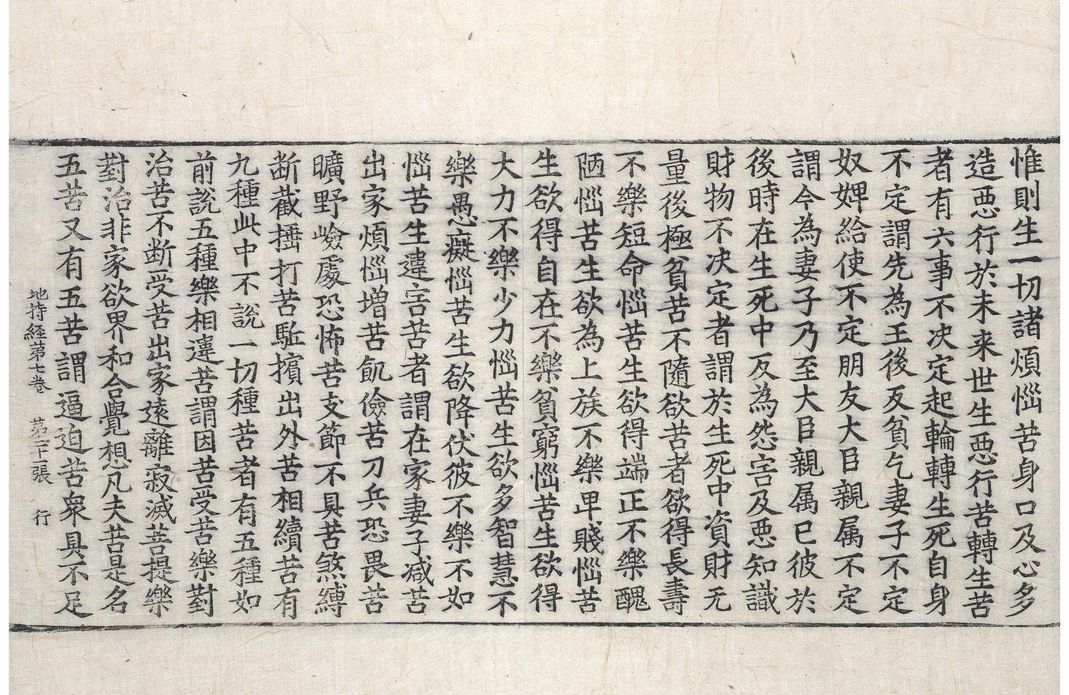 惟則生一切諸煩惱苦身口及心多
造惡行於未来世生惡行苦轉生苦
者有六事不决定起輪轉生死自身
不定謂先為王後反貧乞妻子不定
奴婢給使不定朋友大臣親属不定
謂今為妻子乃至大臣親属巳彼於
後時在生死中反為怨害及惡知識
財物不决定者謂於生死中資財无
量後極貧苦不隨欲苦者欲得長壽
不樂短命惱苦生欲得端正不樂醜
陋惱苦生欲為上族不樂卑賤惱苦
生欲得自在不樂貧窮惱苦生欲得
大力不樂少力惱苦生欲多智慧不
樂愚癡惱苦生欲降伏彼不樂不如
惱苦生違害苦者謂在家妻子减苦
出家煩惱增苦飢儉苦刀兵恐畏苦
曠野嶮處恐怖苦支節不具苦煞縛
断截捶打苦駈擯出外苦相續苦有
九種此中不說一切種苦者有五種如
前說五種樂相違苦謂因苦受苦樂對
治苦不断受苦出家遠離寂滅菩提樂
對治非家欲界和合覺想凡夫苦是名
五苦又有五苦謂逼迫苦衆具不足
地持経苐七卷 苐二十一張 行